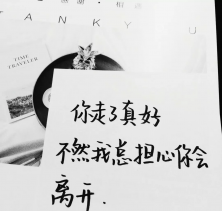 感謝·相遇
ANKY U
TIME
TRAVELER
你走了真好
不然我总担心你会
离开.